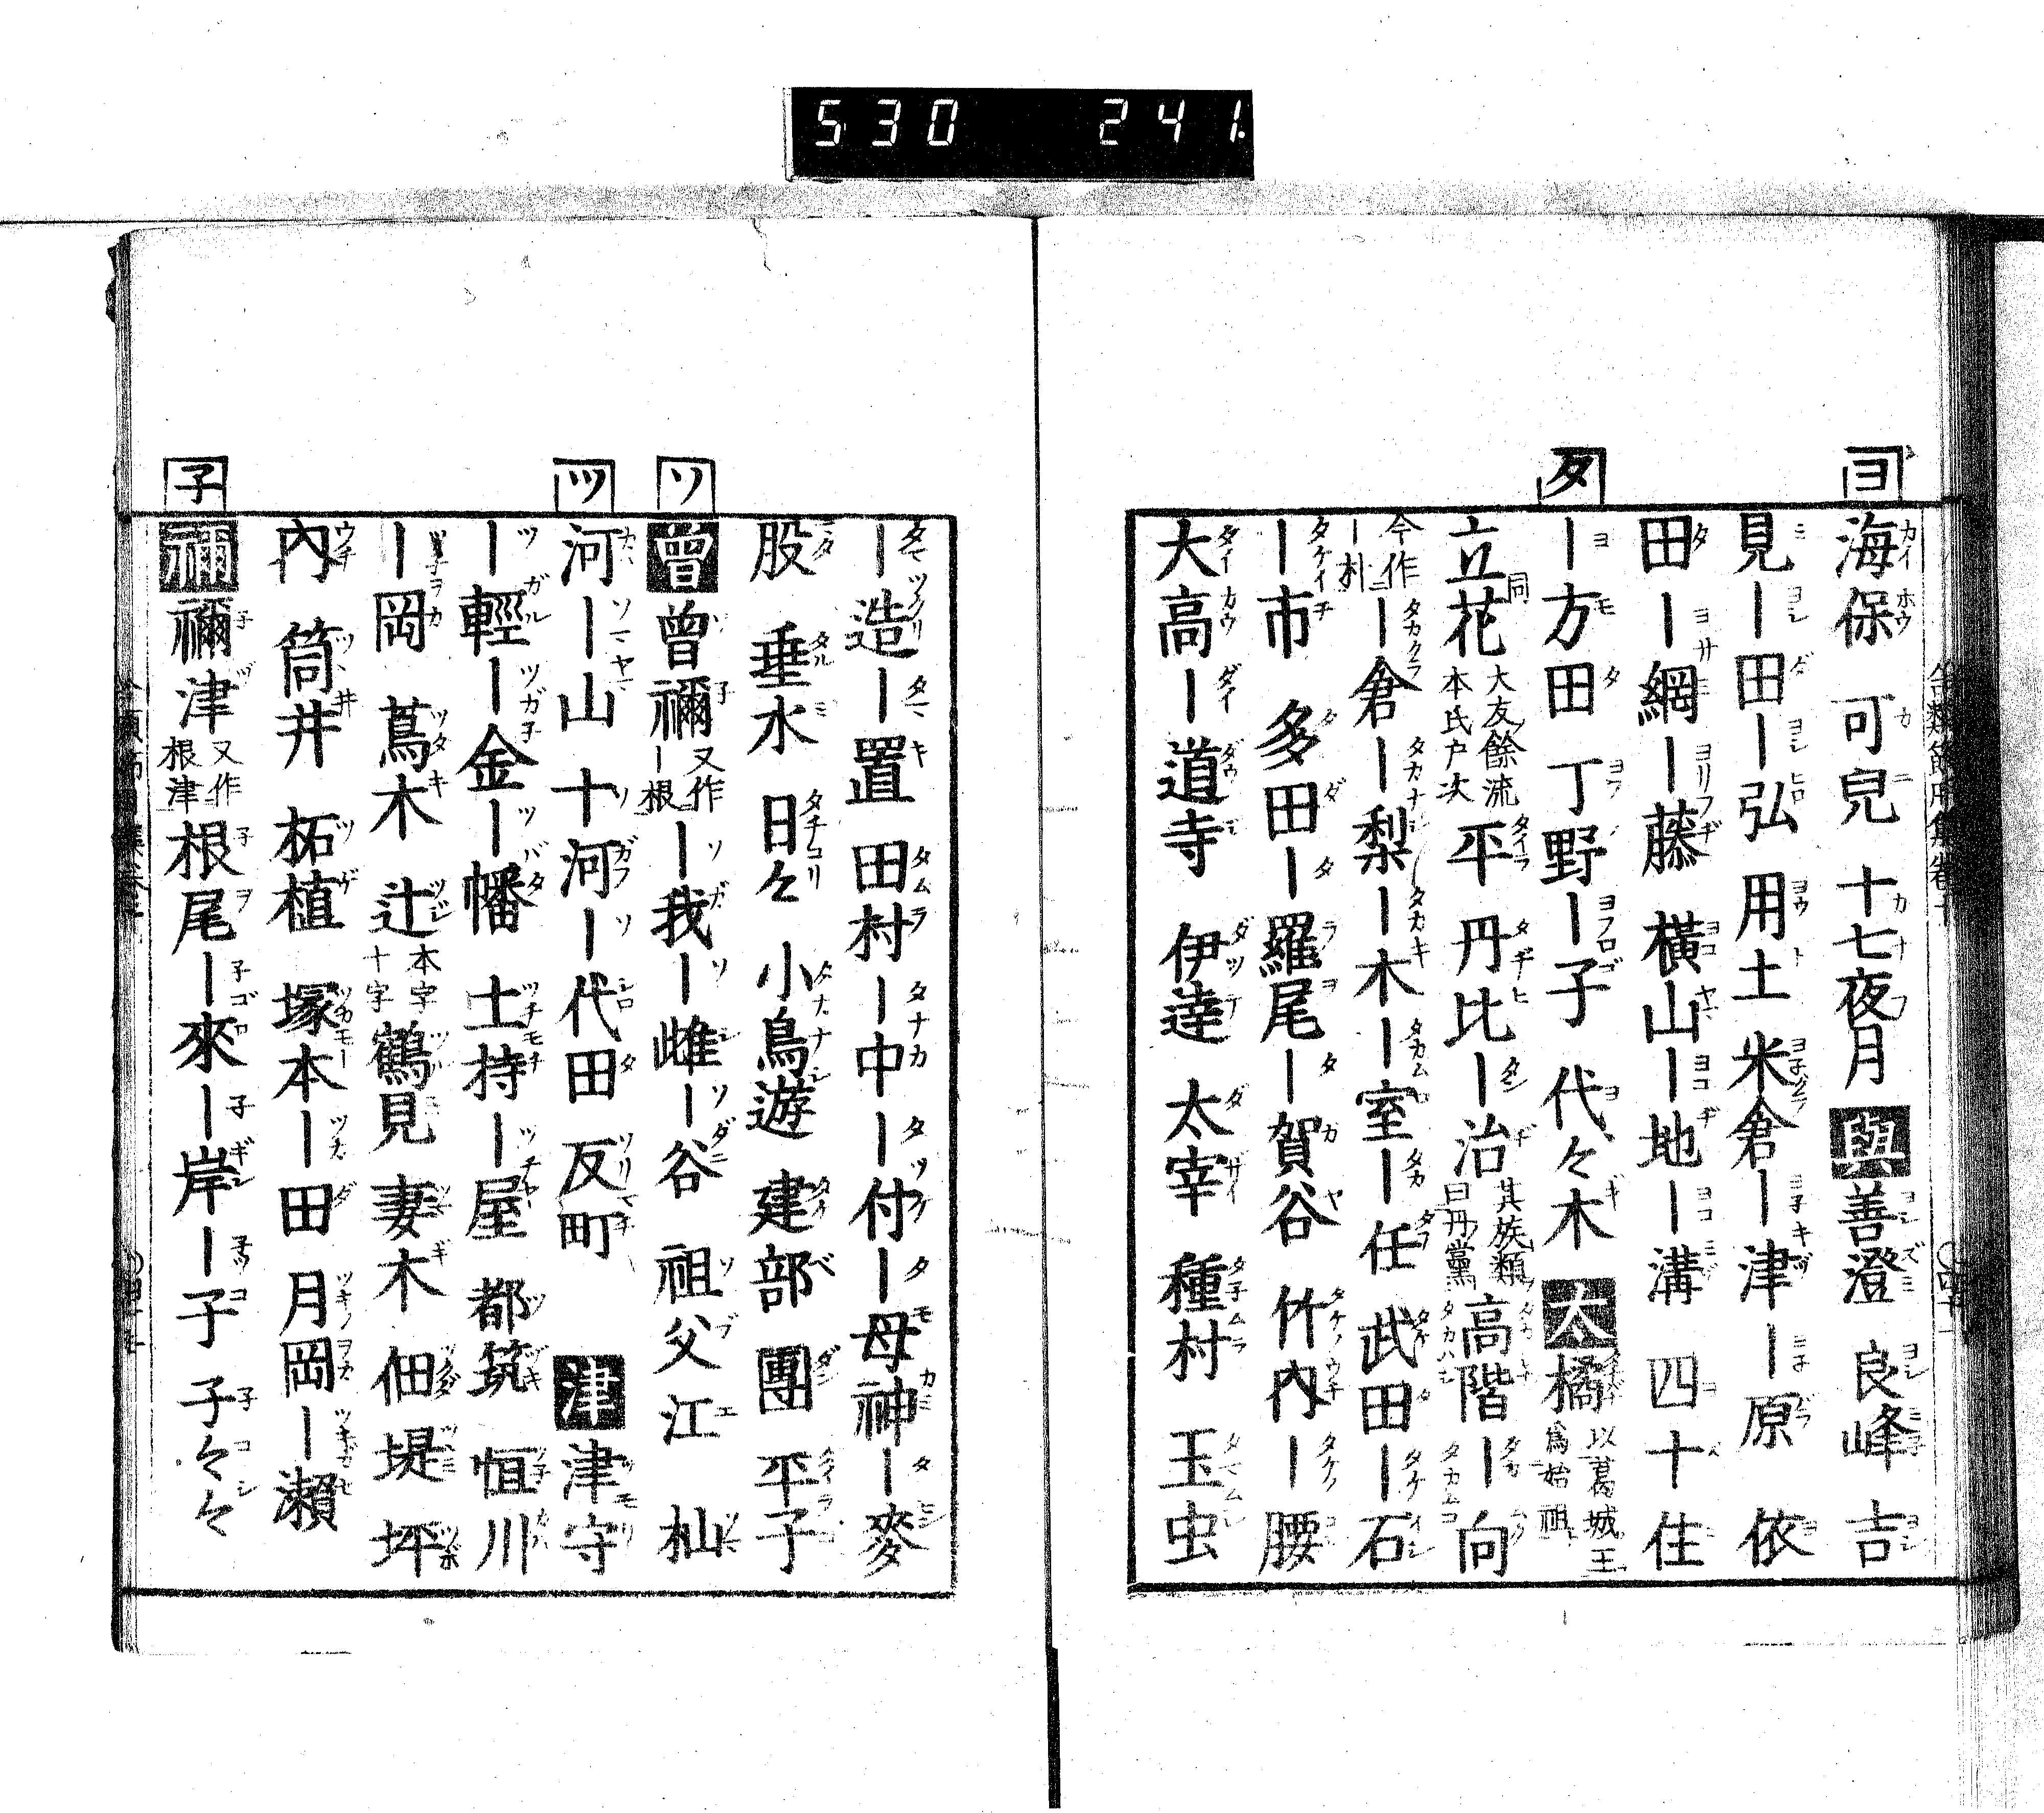 530 241
ヨ
海保 可兒 十七夜月 與 善澄 良峰 吉
見ー田ー弘 用土 米倉ー津ー原 依
田ー網ー藤 橫山ー地ー溝 四十住
タ
ー方田 丁野ー子 代々木 太 橘 以葛城王爲始祖
立花 同 大友餘流本氏戸次 平 丹比ー治 其族類曰丹黨 高階ー向
今作ー朴 ー倉ー梨ー木ー室ー任 武田ー石
ー市 多田ー羅尾ー賀谷 竹內ー腰
大高ー道寺 伊達 太宰 種村 玉虫
ー造ー置 田村ー中ー付ー母神ー麥
股 垂水 日々 小鳥遊 建部 團 平子
ソ
曾 曾禰 又作ー根 ー我ー雌ー谷 祖父江 杣
ツ
河ー山 十河ー代田 反町 津 津守
ー輕ー金ー幡 土持ー屋 都筑 恒川
ー岡 蔦木 辻 本字十字 鶴見 妻木 佃 堤 坪
內 筒井 柘植 塚本ー田 月岡ー瀨
子
禰 禰津 又作根津 根尾ー來ー岸ー子 子々々